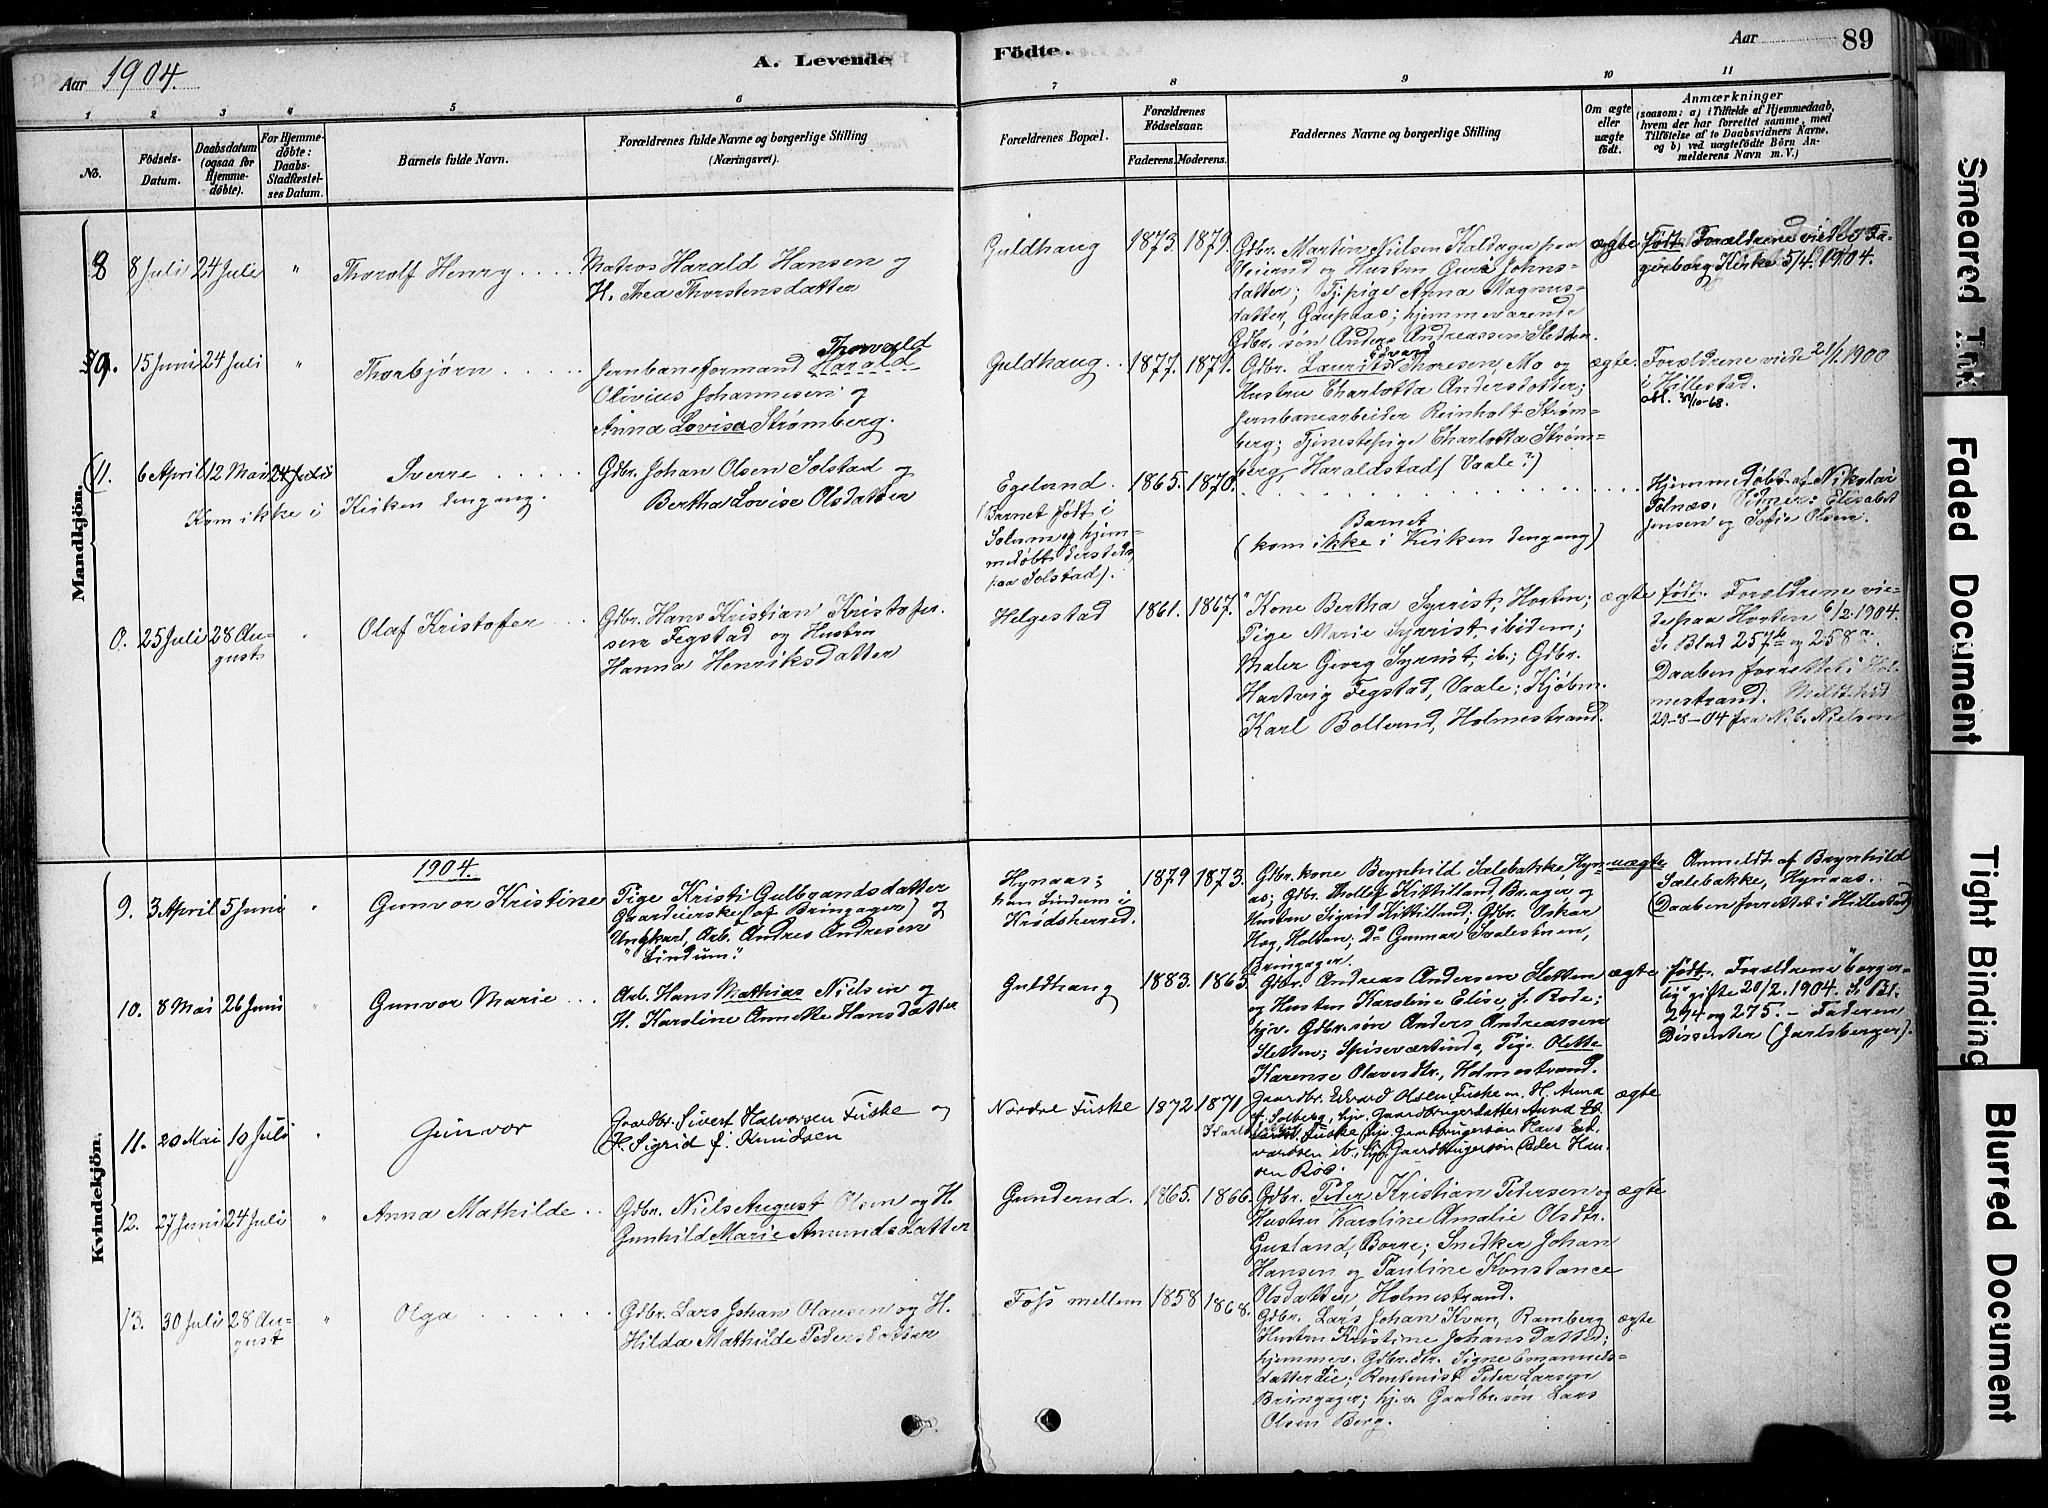 Aar 1904.
A. Levende
Födte.
Aar
89
1 2 3 4 5 6 7 8 9 10 11
No.
Födsels-Datum.
Daabsdatum (ogsaa for Hjemme-döbte).
For Hjemme-döbte: Daabs-Stadfæstel-ses Datum.
Barnets fulde Navn.
Forældrenes fulde Navne og borgerlige Stilling
(Næringsvei).
Forældrenes Bopæl.
Forældrenes Födselsaar.
Faderens. Moderens.
Faddernes Navne og borgerlige Stilling
Om ægte eller uægte födt.
Anmærkninger
(saasom: a) i Tilfælde af Hjemmedaab,
hvem der har forrettet samme, med
Tilföielse af to Daabsvidners Navne.
og b) ved uægtefödte Börn An-
melderens Navn m. V.)
Mandkjön.
8 8 Juli 24 Juli " Thorolf Henry
Matros Harald Hansen og
H. Thea Thorstensdatter
Guldhaug 1873. 1879.
Gdbr. Martin Nielsen Kaldager paa
Veierud og Hustru Guri Johns-
datter; Tj.pige Anna Magnus-
datter, Gaupaas; hjemmeværende
Gdbr. søn Anders Andreassen Sletten.
ægte
født. Forældrene viede i Fa-
gerborg Kirke 5/4. 1904.
9. 15 Juni 24 Juli " Thorbjørn
Thorvald
Jernbaneformand Harald
Olivius Johannesen og
Anna Lovise Strømberg.
Guldhaug 1877. 1879.
Edvard
Gdbr. Laurits Thoresen, Mo og
Hustru Charlotta Andersdatter;
Jernbanearbeider Reinholt Strøm-
berg; Tjenestepige Charlotta Strøm-
berg, Haraldstad (Vaale?)
ægte.
Forældrene viede 21/1 1900
i Hillestad.
obl. 31/10-68.
11. 6 April 12 Mai 24 Juli Sverre
Kom ikke i Kirken dengang.
Gdbr. Johan Olsen Solstad og
Bertha Lovise Olsdatter
Egelund. 1865. 1870.
(Barnet født i
Solum og hjem-
medøbt dersteds,
paa Solstad).
Barnet
(kom ikke i Kirken dengang)
Hjemmedøbt af Nikolai
Folnæs. Vidner: Elisabet
Jensen og Sofie Olsen.
0. 25 Juli 28 Au-
gust
Olaf Kristofer
Gdbr. Hans Kristian Kristofer-
sen Fegstad og Hustru
Hanna Henriksdatter
Helgestad 1861. 1867.
Kone Bertha Syrrist, Horten;
Pige Marie Syrrist, ibidem;
Maler Georg Syrrist, ib.; Gdbr.
Hartvig Fegstad, Vaale; Kjøbm.
Karl Bollerud, Holmestrand.
ægte
født. Forældrene vie-
de paa Horten 6/2. 1904.
Se Blad 257b og 258a.
Daaben forrettet i Hol-
mestrand. Meddelt
29-8-04 fra N. C. Nielsen
Kvindekjön.
1904.
9. 3 April 5 Juni " Gunvor Kristine
Pige Kristi Gulbrandsdatter
(af Bringager) og
Ungkarl, Arb. Andres Andresen
"Lindum".
Hynaas;
han Lindum i
Krødsherred.
1879 1873.
Gdbr.kone Brynhild Salebakke, Hyn-
as; Gdbr. Thollef Kittilland, Brager og
Husten Sigrid Kittilland; Gdbr. Oskar
Høg, Holtan; Do Gunnar
Bringager.
uægte
Anmeldt af Brynhild
Salebakke, Hynaas.
(Daaben forrettet i Hillestad)
10. 8 Mai 26 Juni " Gunvor Marie
Arb. Hans Mathias Nielsen og
H. Karoline Annette Hansdatter
Guldhaug 1883. 1865.
Gdbr. Andreas Andersen Sletten
og Husten Karoline Elise f. Bode;
hjv. Gdbr. søn Anders Andreassen
Sletten; Spiseværtinde, Pige Olette
Karense Olavesdtr., Holmestrand.
ægte
født. Forældrene "borger-
lig" gifte 20/2. 1904. Se Bl.
274 og 275. - Faderen
Dissenter (Jarlsberger).
11. 20 Mai 10 Juli " Gunvor
Gaardbr. Sivert Halvorsen Fuske og
H. Sigrid f. Knudsen
Nordre Fuske 1872 1871
Gaardbr. Edvard Olsen Fuske m. H. Anna
f. Solberg, hjv. Gaardbrugerdatter Anna Ed-
vardsd. Fuske, hjv. Gaardbrugersøn Hans Ed-
vardsen ib., hjv. Gaardbrugersøn Peder Han-
sen Röe.
ægte
12. 27 Juni 24 Juli " Anna Mathilde
Gdbr. Niels August Olsen og H.
Gunhild Marie Amundsdatter
Gunderud. 1865. 1866.
Gdbr. Peder Kristian Pedersen og
Hustru Karoline Amalie Olsdtr.
Gusland, Borre; Snedker Johan
Hansen og Pauline Konstance
Olsdatter, Holmestrand.
ægte
13. 30 Juli 28 Au-
gust
" Olga
Gdbr. Lars Johan Olausen og H.
Hilda Mathilde Pedersdatter
Foss mellem 1858 1868.
Gdbr. Lars Johan Kvan, Ramberg
Husten Kristine Johansdatter;
hjemmev. Gdbr.dtr. Signe Emanuels-
datter Lie; Rentenist Peder Larsen
Bringager; hj.v. Gaardbr.søn Lars
Olsen Berg.
ægte
Smeared Ink
Faded Document
Tight Binding
Blurred Document